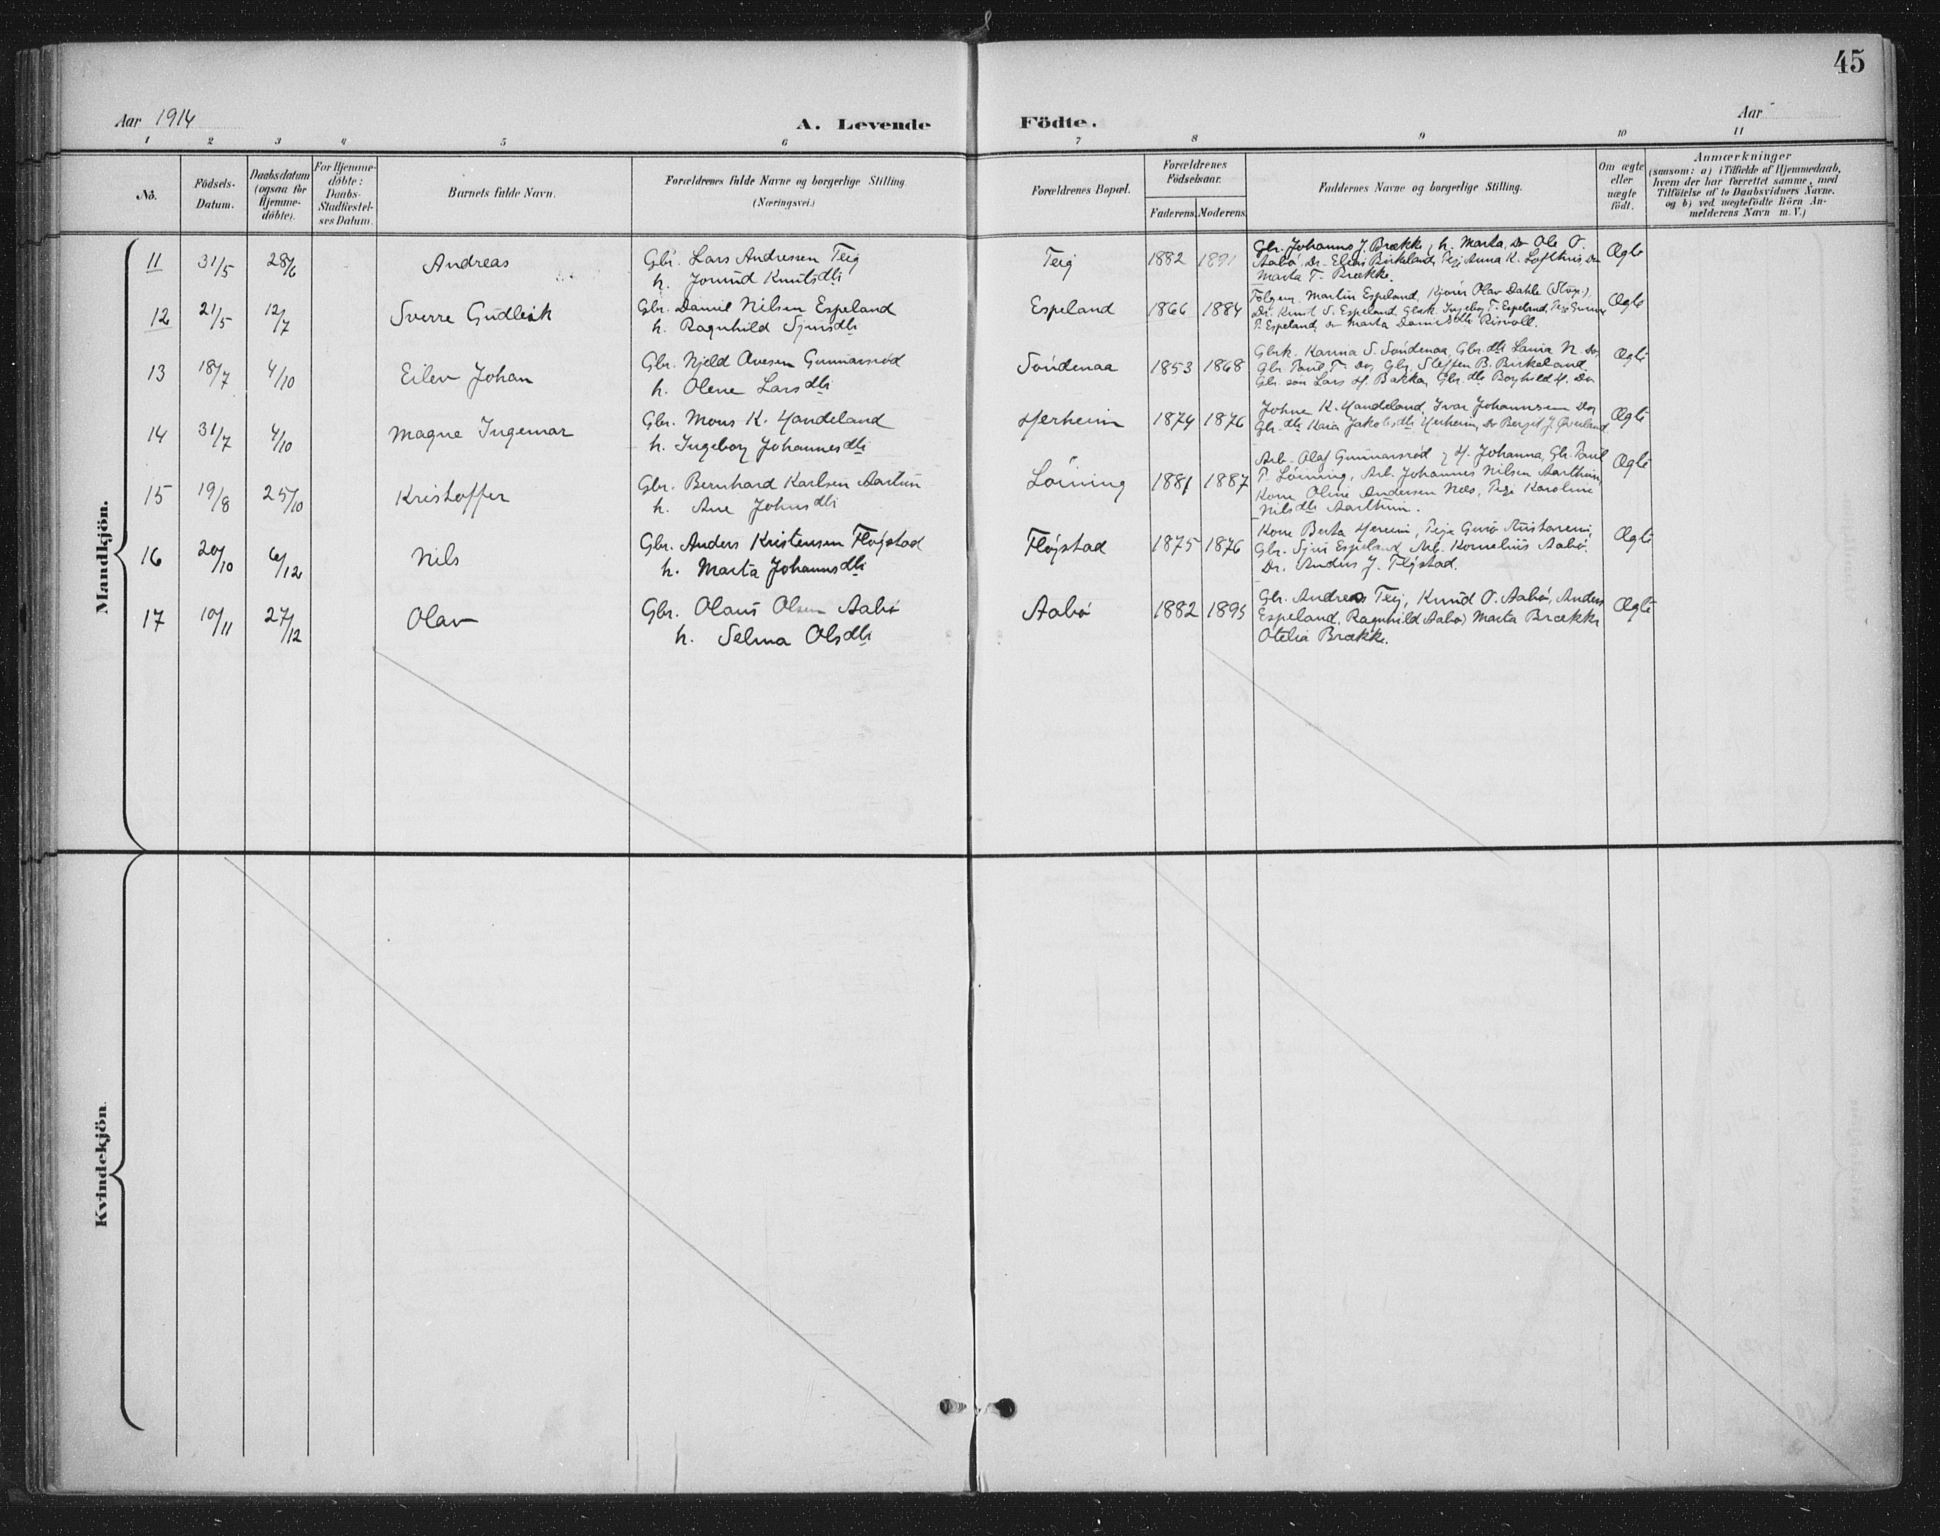 45
Aar 1914
A. Levende Födte.
Aar
1 2 3 4 5 6 7 8 9 10 11
No.
Födsels-Datum.
Daabsdatum (ogsaa for Hjemme-döbte).
For Hjemme-döbte: Daabs-Stadfæstel-ses Datum.
Barnets fulde Navn.
Forældrenes fulde Navne og borgerlige Stilling.
(Næringsvei.)
Forældrenes Bopæl.
Forældrenes Födselsaar.
Faderens. Moderens.
Faddernes Navne og borgerlige Stilling.
Om ægte eller uægte födt.
Anmærkninger
(saasom: a) i Tilfælde af Hjemmedaab,
hvem der har forrettet samme, med
Tilföielse af to Daabsvidners Navne.
og b) ved uægtefödte Börn An-
melderens Navn m. V.)
Mandkjön.
11 31/5 28/6 Andreas
Gbr. Lars Andresen Teig
h. Jorund Knutsdtr
Teig 1882 1891
Gbr. Johannes J. Brække, h. Marta, Do Ole O.
Aabø, Dr. Elias Birkeland, Pige Anna K. Lofthus, Do
Marta T. Brække.
Ægte
12 21/5 12/7 Sverre Gudleik
Gbr. Daniel Nilsen Espeland
h. Ragnhild Sjursdtr
Espeland 1866 1884
Martin Espeland, Olav Dahle
Dr. Knut S. Espeland, Gbrk. Ingeborg T. Espeland, Pige
T. Espeland, Do Marta Danielsdtr Risvoll.
Ægte
13 18/7 4/10 Eilev Johan
Gbr. Njeld Avesen Gunnarsrød
h. Olene Larsdtr
Söndenaa 1853 1868
Gbrk. Karina S. Söndenaa, Gbr.dtr Laura N. Do,
Gbr. Paul T. Do, Gbr. Steffen B. Birkeland.
Gbr. søn Lars H. Bakka, Gbr.dtr Borghild H. Do
Ægte
14 31/7 4/10 Magne Ingemar
Gbr. Mons K. Handeland
h. Ingeborg Johannesdtr
Herheim 1874 1876
Johne K. Handeland, Ivar Johannesen Do,
Gbr.dtr Kaia Jakobsdtr Herheim, Do Bergit J. Øverland
Ægte
15 19/8 25/10 Kristoffer
Gbr. Bernhard Karlsen Aartun
h. Ane Johnsdtr
Löining 1881 1887
Arb. Olaf Gunnarsrød, H. Johanna, Gbr. Paul
P. Löining, Arb. Johannes Nilsen Aarthun,
Kone Oline Andersen Næs, Pige Karoline
Nilsdtr Aarthun.
Ægte
16 20/10 6/12 Nils
Gbr. Anders Kristensen Fløgstad
h. Marta Johannsdtr
Fløgstad 1875 1876
Kone Berta Hereim, Pige Guro Austarheim,
Gbr. Sjur Espeland, Arb. Kornelius Aabø.
Dr. Anders J. Fløgstad.
Ægte
17 10/11 27/12 Olav
Gbr. Olaus Olsen Aabø
h. Selma Olsdtr
Aabø 1882 1895
Gbr. Andreas Teig, Knud O. Aabø, Anders
Espeland, Ragnhild Aabø, Marta Brække
Otelia Brække.
Ægte
Kvindekjön.